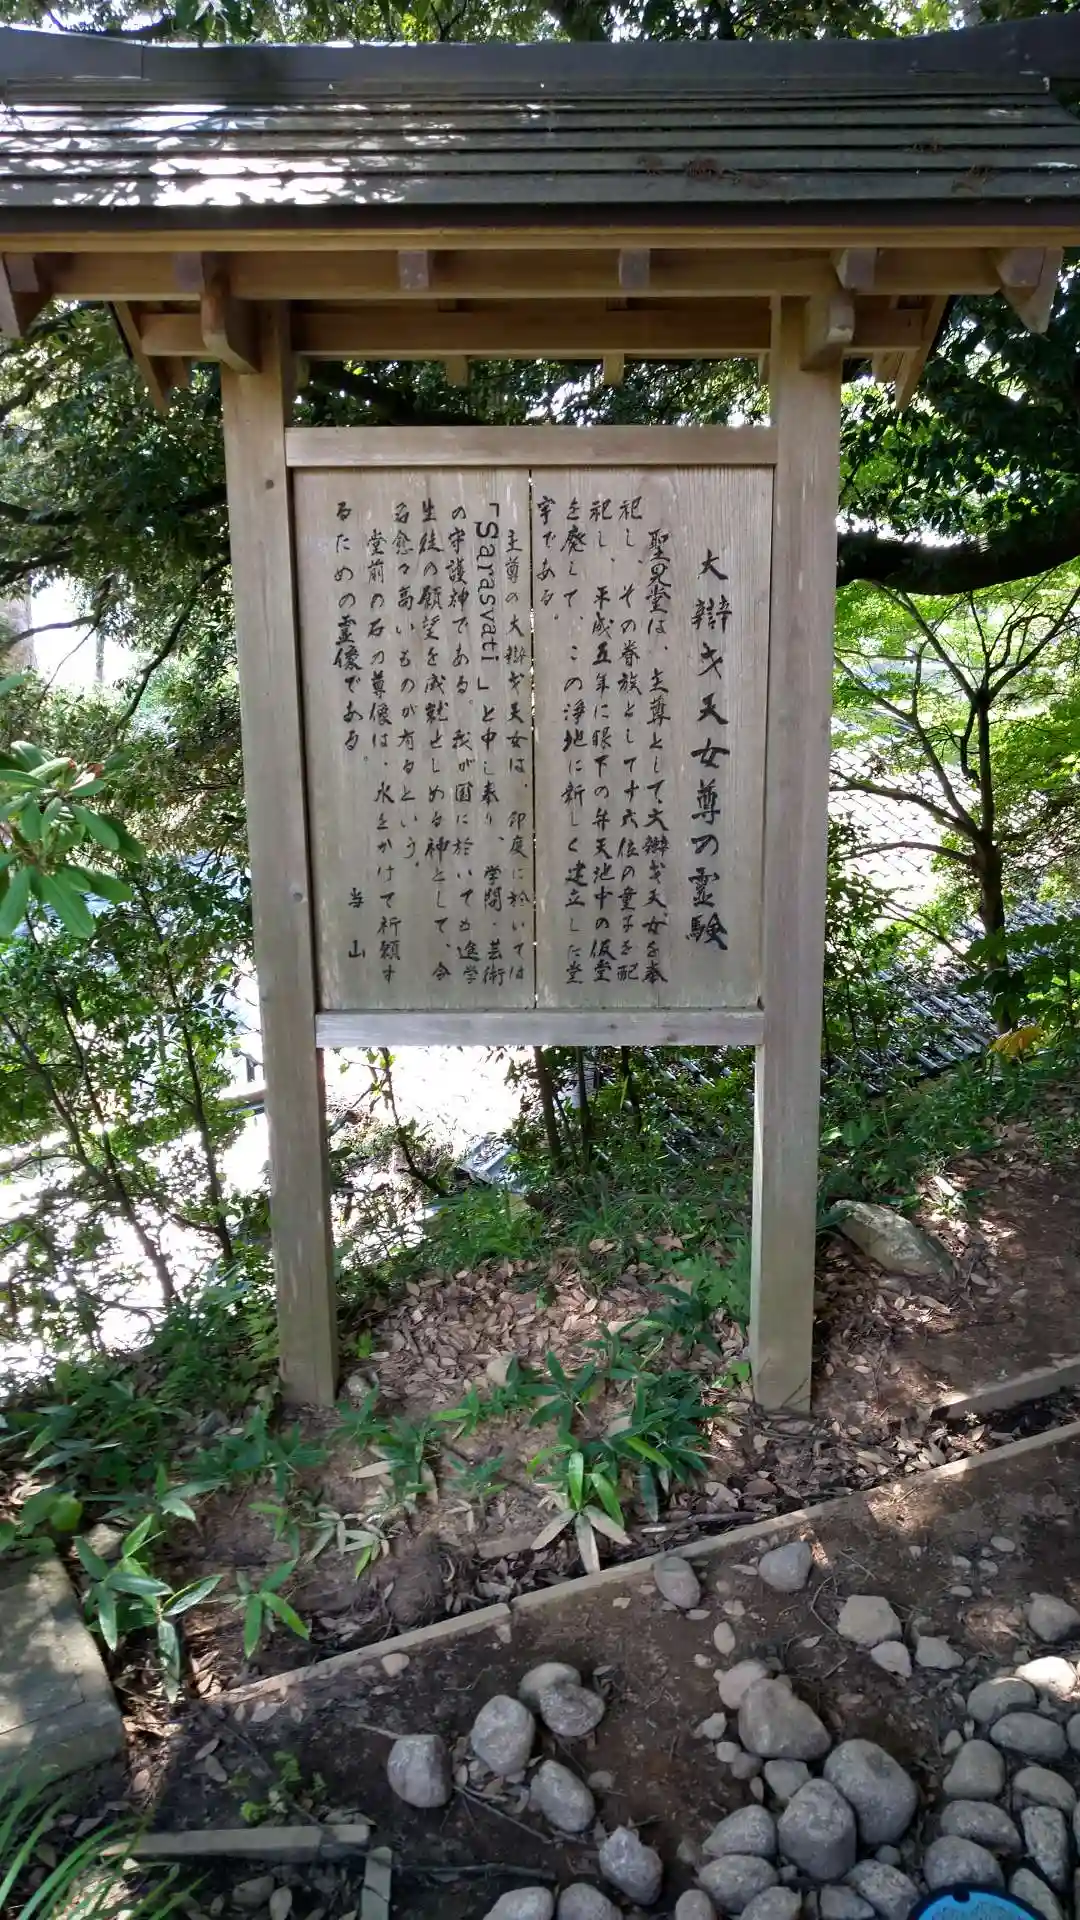 大辯才天女尊の霊験
聖天堂は、主尊として大辯才天女を奉
祀し、その眷族として十六位の童子を配
祀し、平成五年に眼下の弁天池中の仮堂
を廃して、この浄地に新しく建立した堂
宇である。
主尊の大辯才天女は、印度に於いては
「Sarasvati」と申し奉り、学問、芸術
の守護神である。我が国に於いても進学
生徒の願望を成就せしめる神として、令
名愈々高いものが有るという。
堂前の石の尊像は、水をかけて祈願す
るための霊像である。
当山